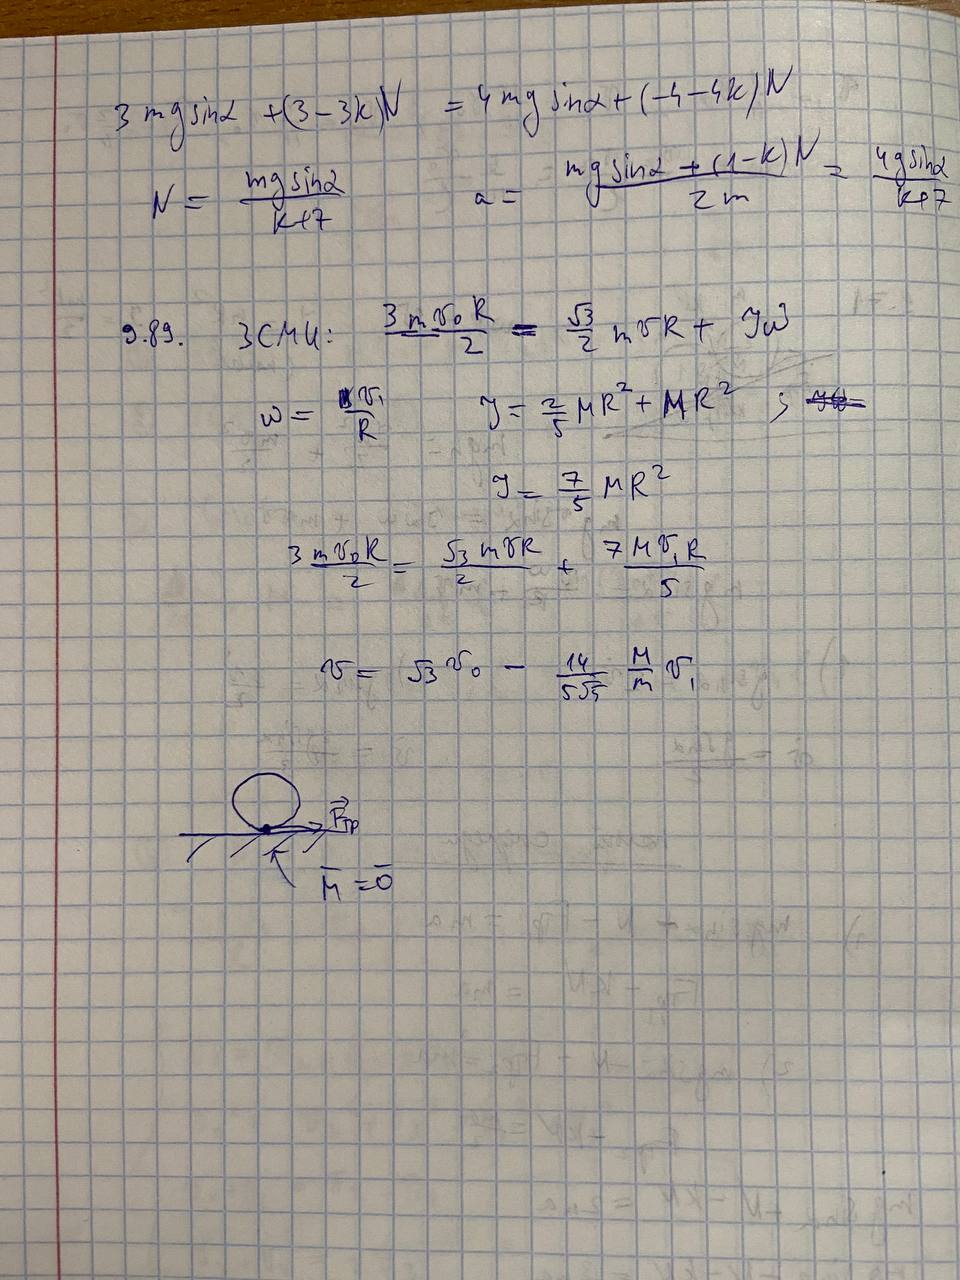 3mg sinα + (3-3k)N = 4mg sinα + (-4-4k)N
N = mg sinα / k+7    a = mg sinα + (1-k)N / 2m = 4g sinα / k+7
9.89. ЗСМИ: 3mv₀R / 2 = √3/2 mvR + Jω
ω = v₁/R    J = 2/5 MR² + MR² ;
J = 7/5 MR²
3mv₀R / 2 = √3 mvR / 2 + 7Mv₁R / 5
v = √3 v₀ - 14/5√3 M/m v₁
F⃗тр
M̅ = 0̅